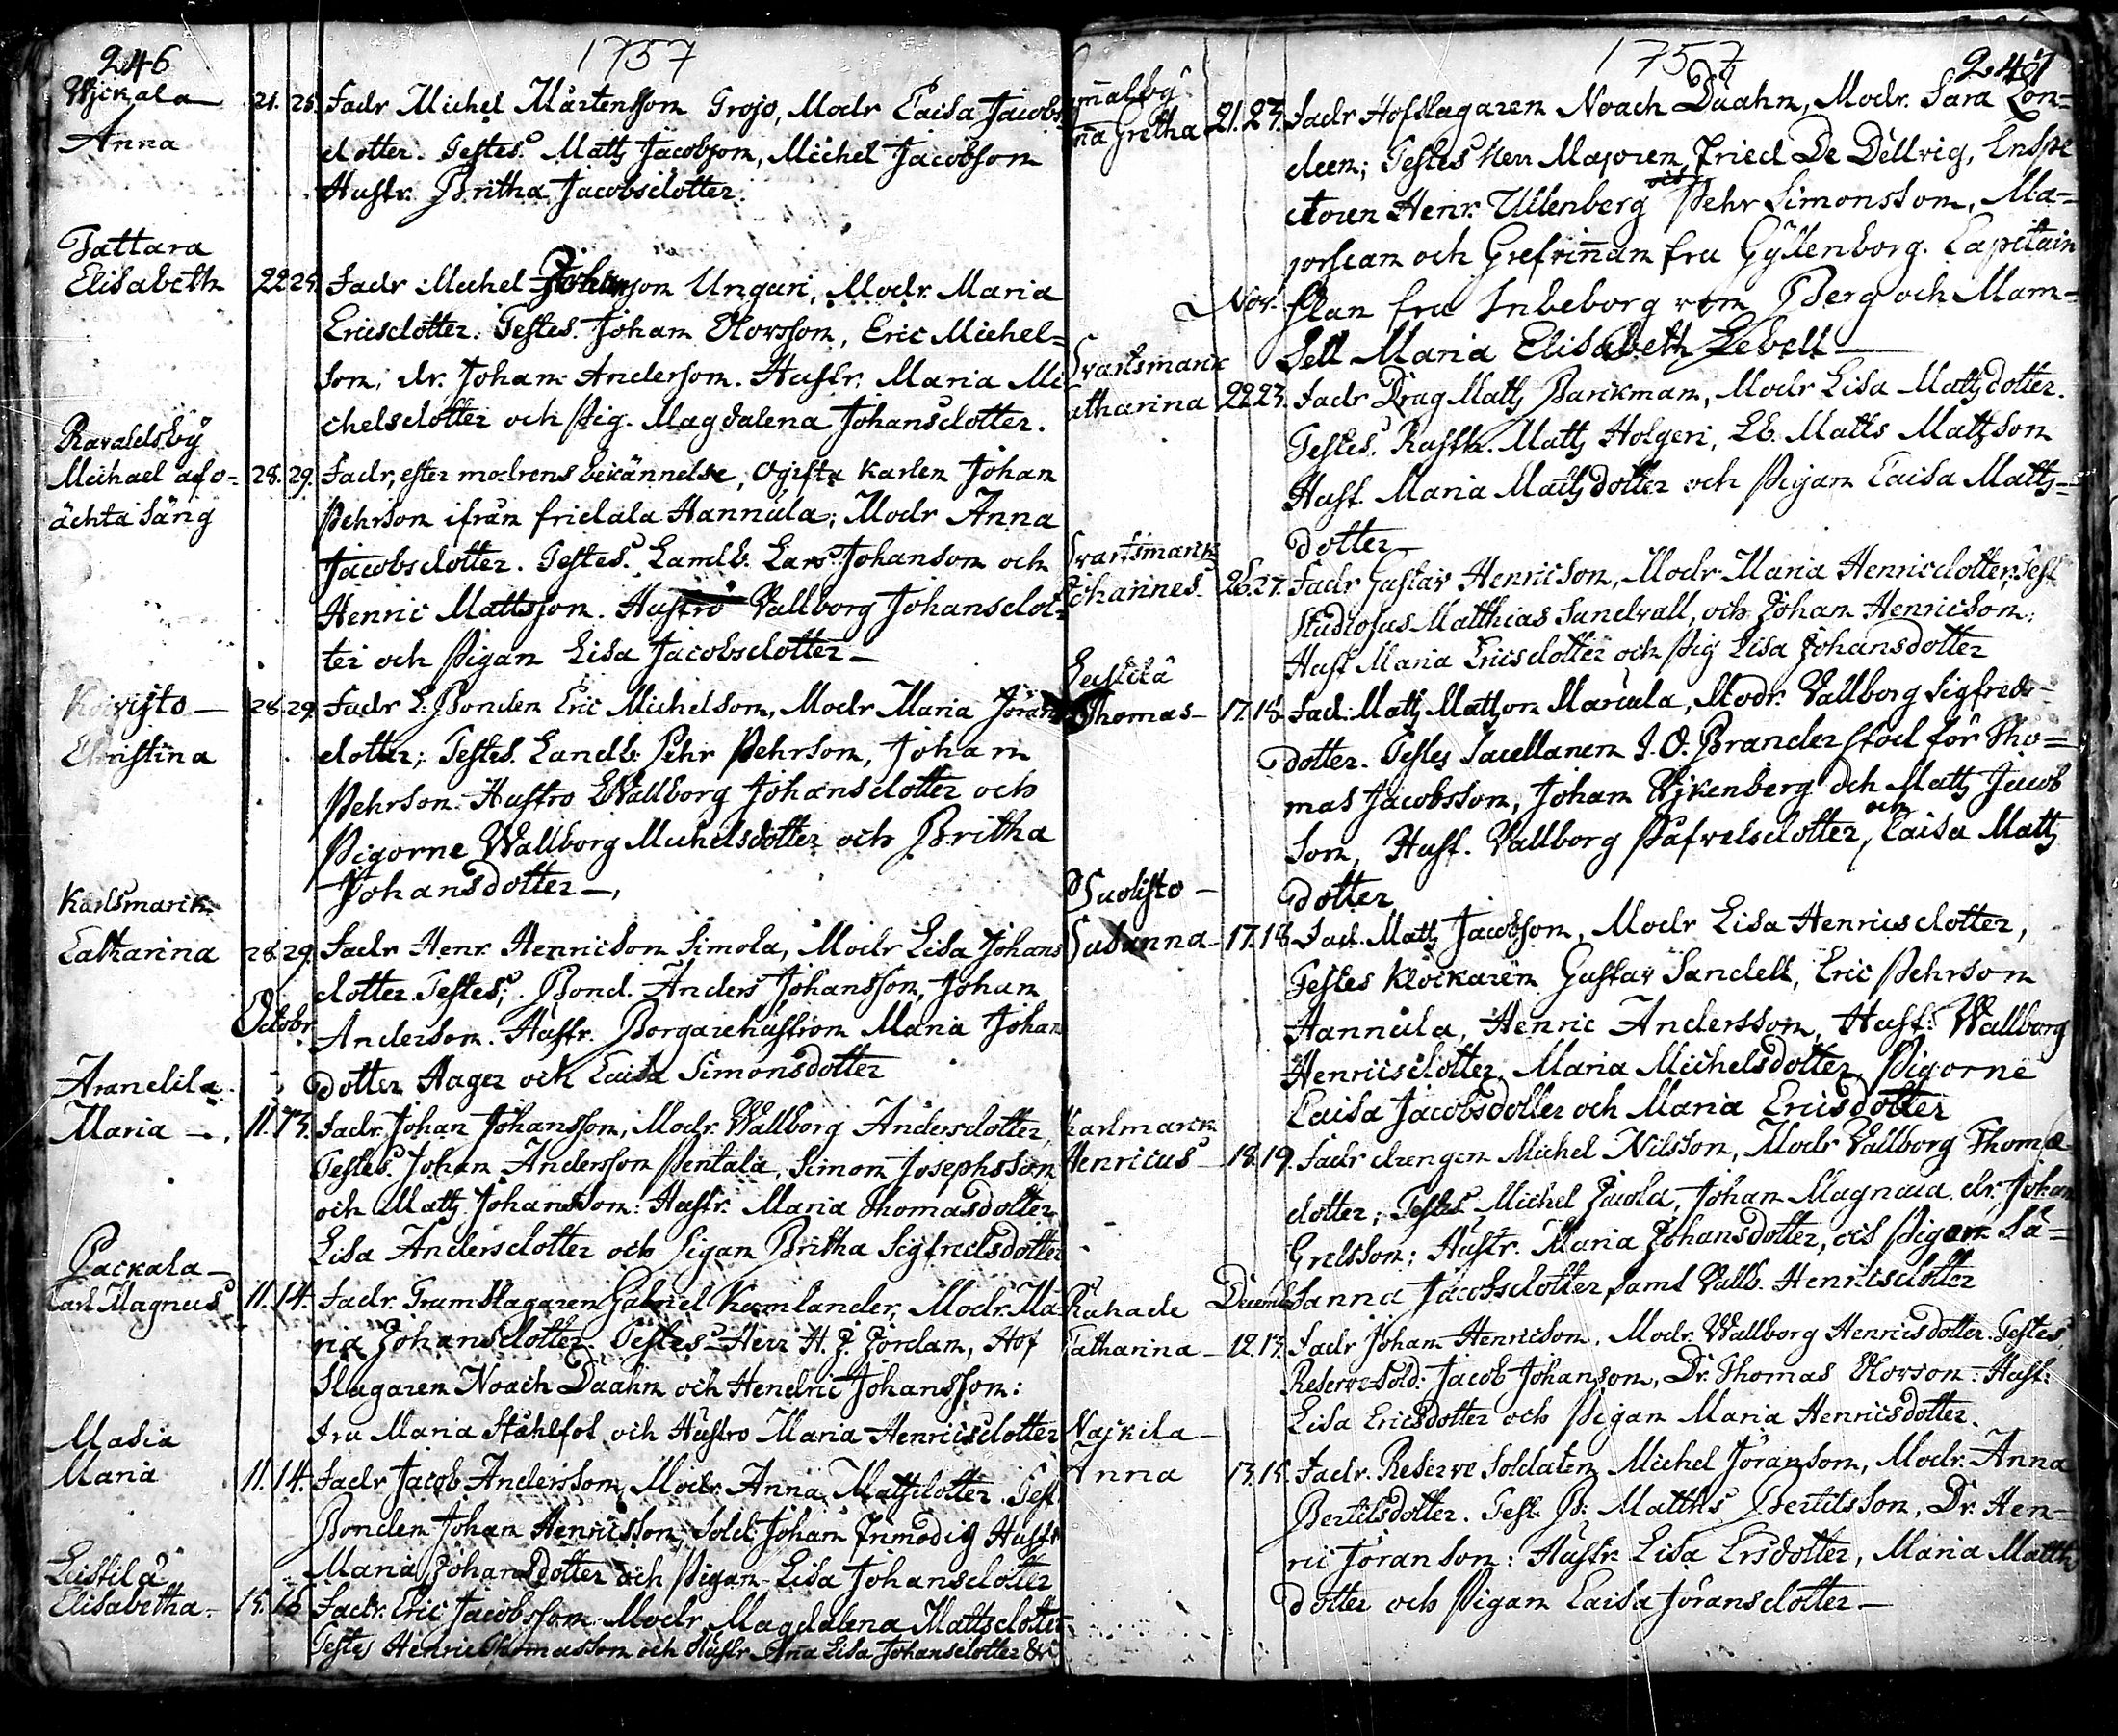 246
1757
Wjckala 21. 25. Fadr Michel Mårtensson Grojs, Modr Caisa Jacobs
Anna dotter. Testes. Matts Jacobsson, Michel Jacobsson
Hustr. Britha Jacobsdotter.
Tattara
Elisabeth 22 25. Fadr Michel Johansson Ungari, Modr. Maria
Ericsdotter. Testes. Johan Olovsson, Eric Michel=
son, dr. Johan Anderson. Hustr. Maria Mi
chelsdotter och Pig. Magdalena Johansdotter.
Ravaldsbÿ
Michael af o= 28. 29. Fadr, efter modrens bekännelse, ogifta karlen Johan
ächta säng Pehrson ifrån fridala Hannula; Modr Anna
Jacobsdotter. Testes. Landb. Lars Johanson och
Henric Mattsson. Hustro Vallborg Johansdot=
ter och Pigan Lisa Jacobsdotter —
Koivisto — 28. 29. Fadr L. Bonden Eric Michelson, Modr Maria Jörans
Christina dotter; Testes. Landb. Pehr Pehrson, Johan
Pehrson. Hustro Wallborg Johansdotter och
Pigorne Wallborg Michelsdotter och Britha
Johansdotter —,
Karlsmarck
Catharina 28. 29. Fadr Henr. Henricson Simola, Modr Lisa Johans
dotter. Testes; Bond. Anders Johansson, Johan
Octobr. Anderson. Hustr. Borgarehustron Maria Johan
dotter Hager och Caisa Simonsdotter
Arandila
Maria —. 11. 13. Fadr. Johan Johansson, Modr. Wallborg Andersdotter,
Testes. Johan Andersson Pentala, Simon Josephsson
och Matts Johansson: Hustr. Maria Thomasdotter,
Lisa Andersdotter och Pigan Britha Sigfredsdotter
Packala —
Carl Magnus 11. 14. Fadr. Gramslagaren Gabriel Kamlander, Modr. Ma-
ria Johansdotter. Testes Herr H. J. Jordan, Hof
slagaren Noach Daahn och Hendric Johansson:
Fru Maria Ståhlfot och Hustro Maria Henricsdotter
Masia
Maria 11. 14. Fadr Jacob Andersson, Modr. Anna Mattsdotter. Test
Bonden Johan Henricsson, Sold. Johan Inmodig Hustr
Maria Johansdotter och Pigan Lisa Johansdotter
Leistilä
Elisabetha. 15. 16 Fadr. Eric Jacobsson. Modr Magdalena Mattsdotter
Testes Henric Thomasson och Hustr Anna Lisa Johansdotter &c
1757
247
21. 23. Fadr Hofslagaren Noach Daahn, Modr. Sara Lon=
Gretha deen; Testes Herr Majoren Fried De Dellvig, Inspe
ctoren Henr. Ullenberg och Pehr Simonsson, Ma=
jorskan och Grefvin̄an fru Gÿllenborg. Capitain
Nov. skan fru Inbeborg von Berg och Mam=
sell Maria Elisabeth Lebell —
Svartsmark
atharina 22 23. Fadr Drag Matts Barckman, Modr Lisa Mattsdotter.
Testes. Rusth. Matts Holgeri, LB. Matts Mattsson
Hust Maria Mattsdotter och Pigan Caisa Matts=
dotter
Svartsmark
Johannes 26. 27. Fadr Gustav Henricson, Modr Maria Henricsdotter, Test
Studiosus Matthias Sundvall, och Johan Henricsson,
Hust Maria Ericsdotter och Pig Lisa Johansdotter
Leistilä
Thomas — 17. 18. Fad. Matts Mattson Marcula, Modr. Vallborg Sigfreds=
dotter. Testes Sacellanen I. O. Brander stod för Tho=
mas Jacobsson, Johan Wjkenberg och Matts Jacob
son, Hust. Vallborg Påfvelsdotter, och Caisa Matts
Suolisto — dotter
Susanna 17. 18 Fad. Matts Jacobsson, Modr Lisa Henricsdotter,
Testes Klockaren Gustav Sandell, Eric Pehrson
Hannula, Henric Andersson, Hust. Wallborg
Henricsdotter, Maria Michelsdotter, Pigorne
Caisa Jacobsdotter och Maria Ericsdotter
Karlmarck
Henricus 18. 19. Fadr drengen Michel Nilsson, Modr Vallborg Thomæ
dotter; Testes Michel Juola, Johan Magnaia, dr. Johan
Grelsson; Hustr. Maria Johansdotter, och Pigan Su=
Decemb. sanna Jacobsdotter, samt Vallb. Henricsdotter
Ruhade
Catharina 12. 13. Fadr Johan Henricson. Modr. Wallborg Henricsdotter. Testes.
ReserveSold: Jacob Johansson, Dr. Thomas Olovson: Hust:
Lisa Ericsdotter och Pigan Maria Henricsdotter.
Najkila —
Anna 13. 15. Fadr. Reserve Soldaten Michel Jöranson, Modr. Anna
Bertilsdotter. Test. B: Matths Bertilsson, Dr. Hen=
ric Jöranson: Hustr. Lisa Ersdotter, Maria Matth
dotter och Pigan Caisa Jöransdotter —